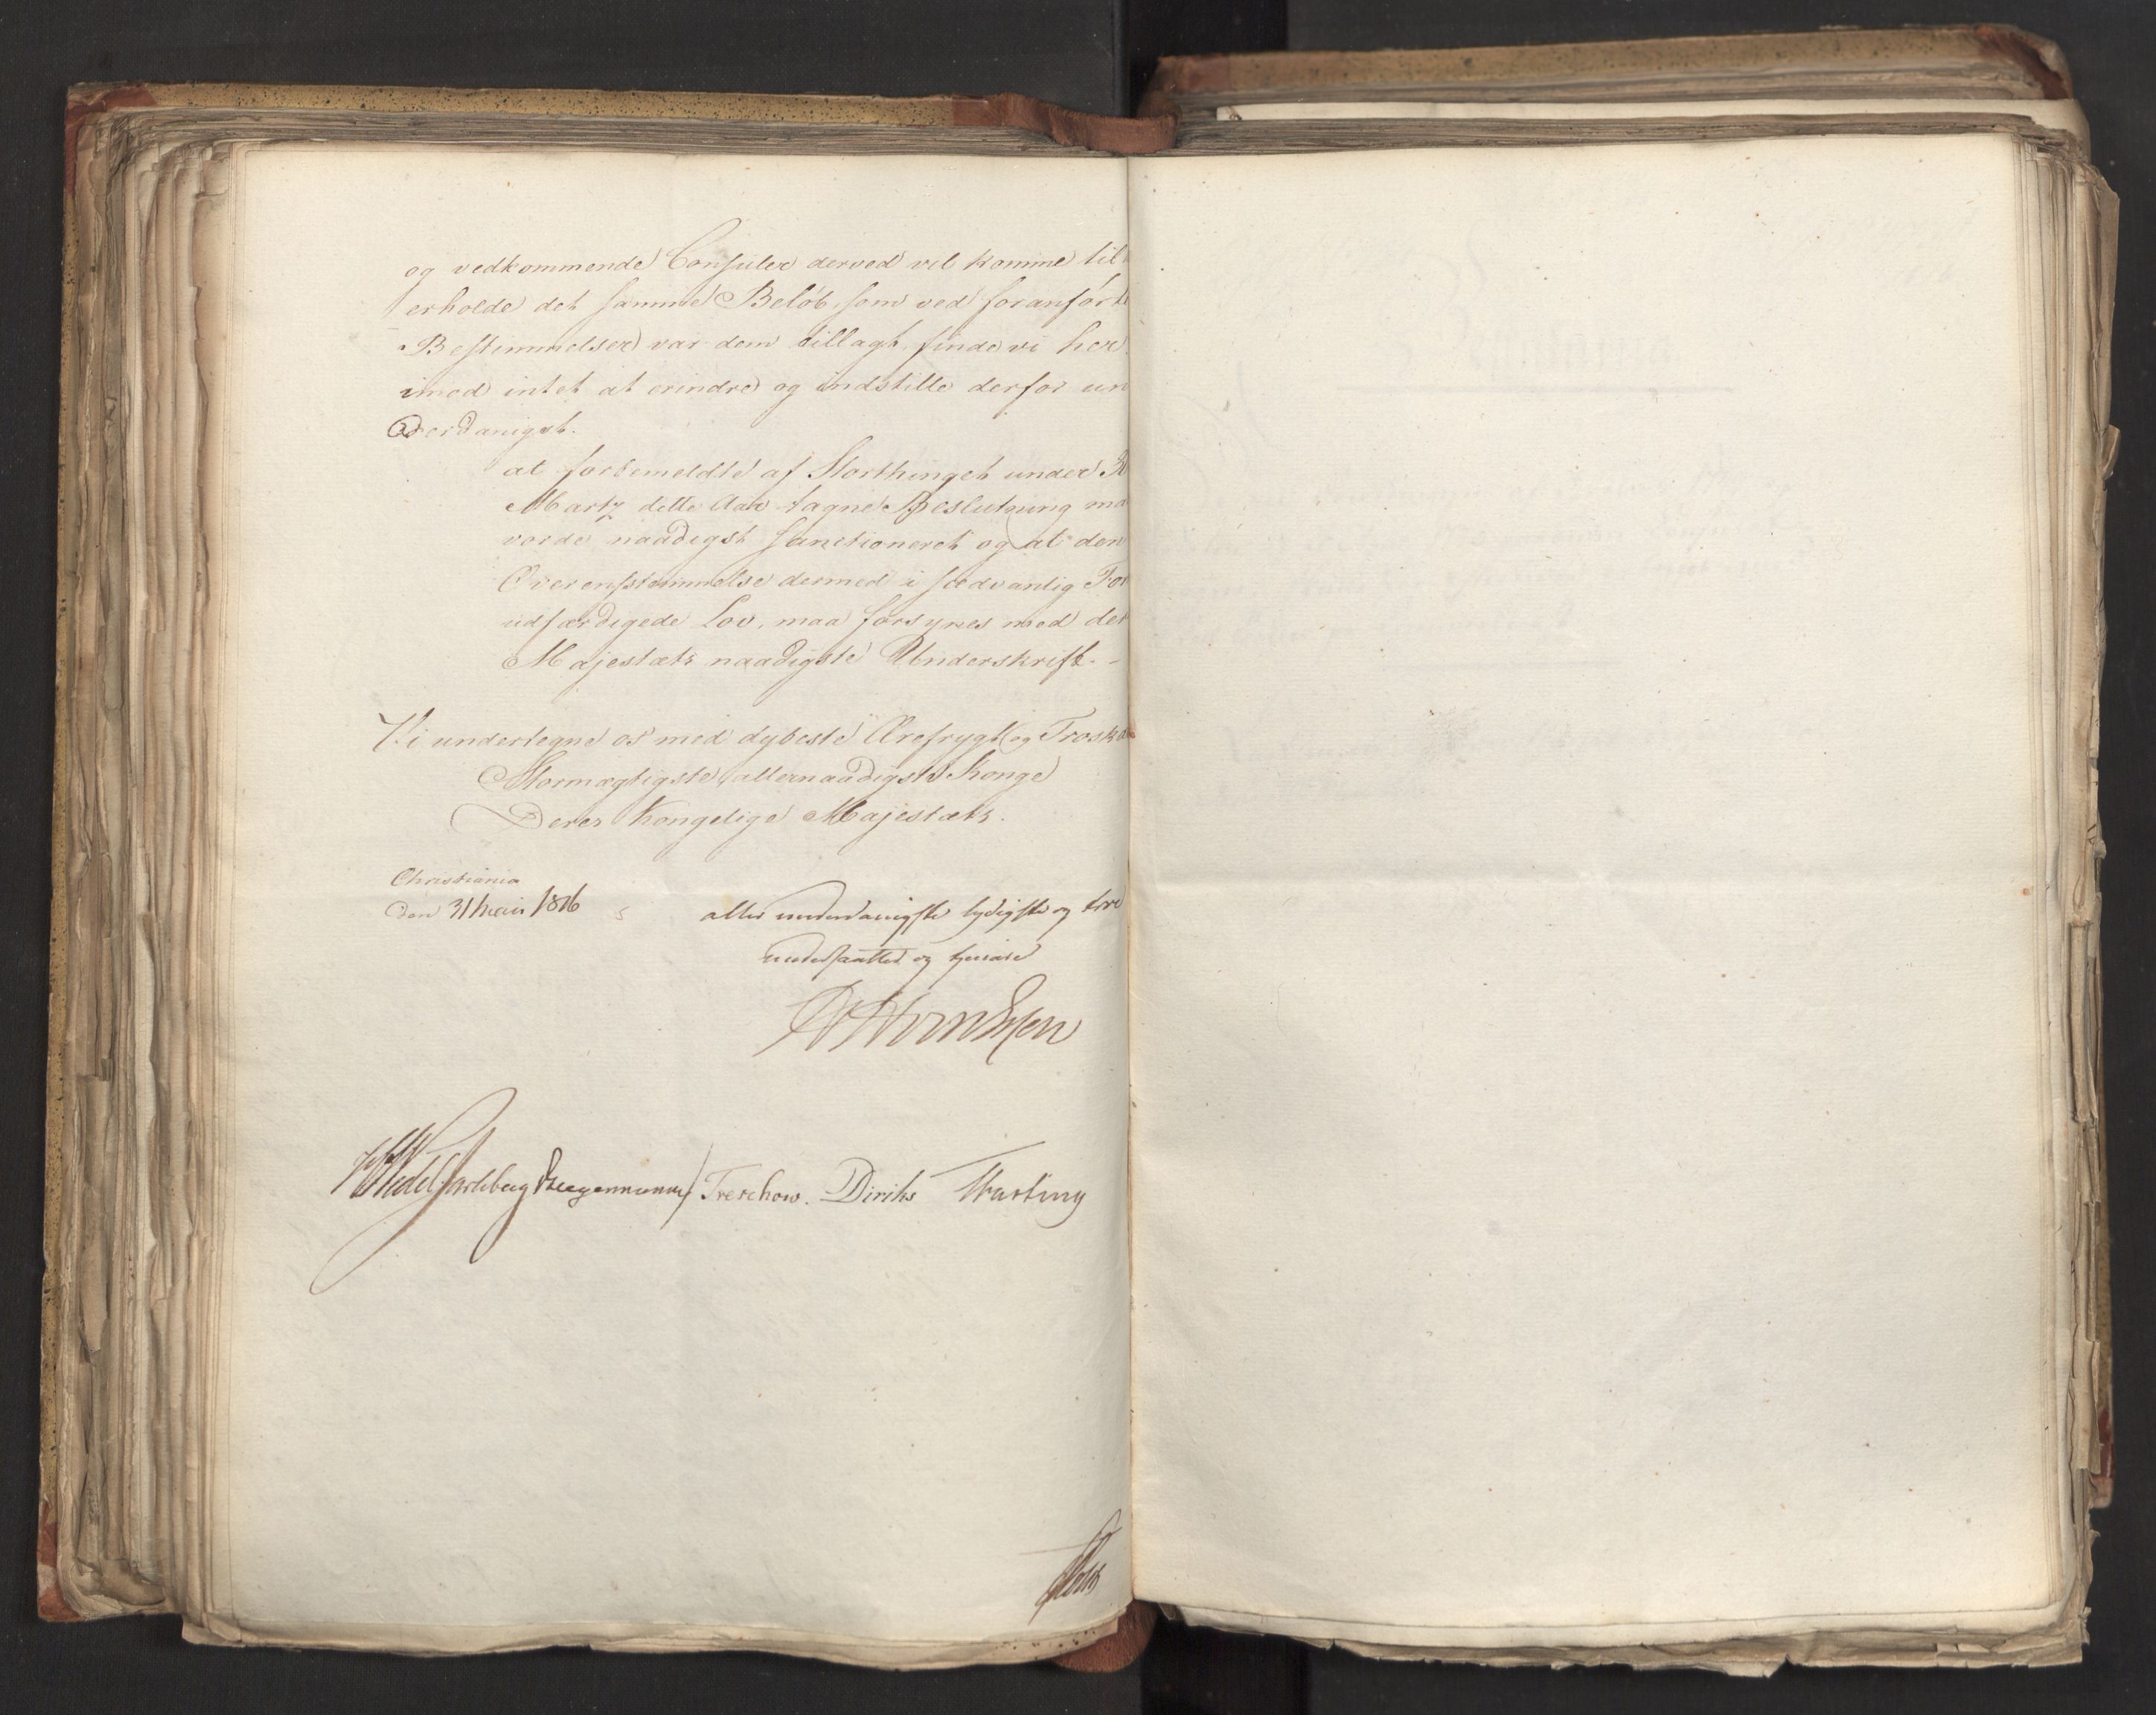 og vedkommende Consuler derved vil komme til
erholde det samme Beløb, som ved foranførte
Bestemmelser var dem tillagt, finde vi her
imod intet at erindre og indstille derfor un
derdanigst.
at forbemeldte af Storthinget under
Martz dette Aar tagne Beslutning ma
vorde naadigst sanctioneret og at den
Overensstemmelse dermed i sædvanlig For
udfærdigede Lov, maa forsynes med der
Majestæts naadigste Underskrift. -
Vi undertegne os med dybeste Ærefrygt og Troska
Stormægtigste, allernaadigste Konge
Deres Kongelige Majestæts.
Christiania
den 31 Mai 1816
aller underdanigste lydigste og troe
undersaatter og tjenere
Wedel Jarlsberg Treschow. Diriks